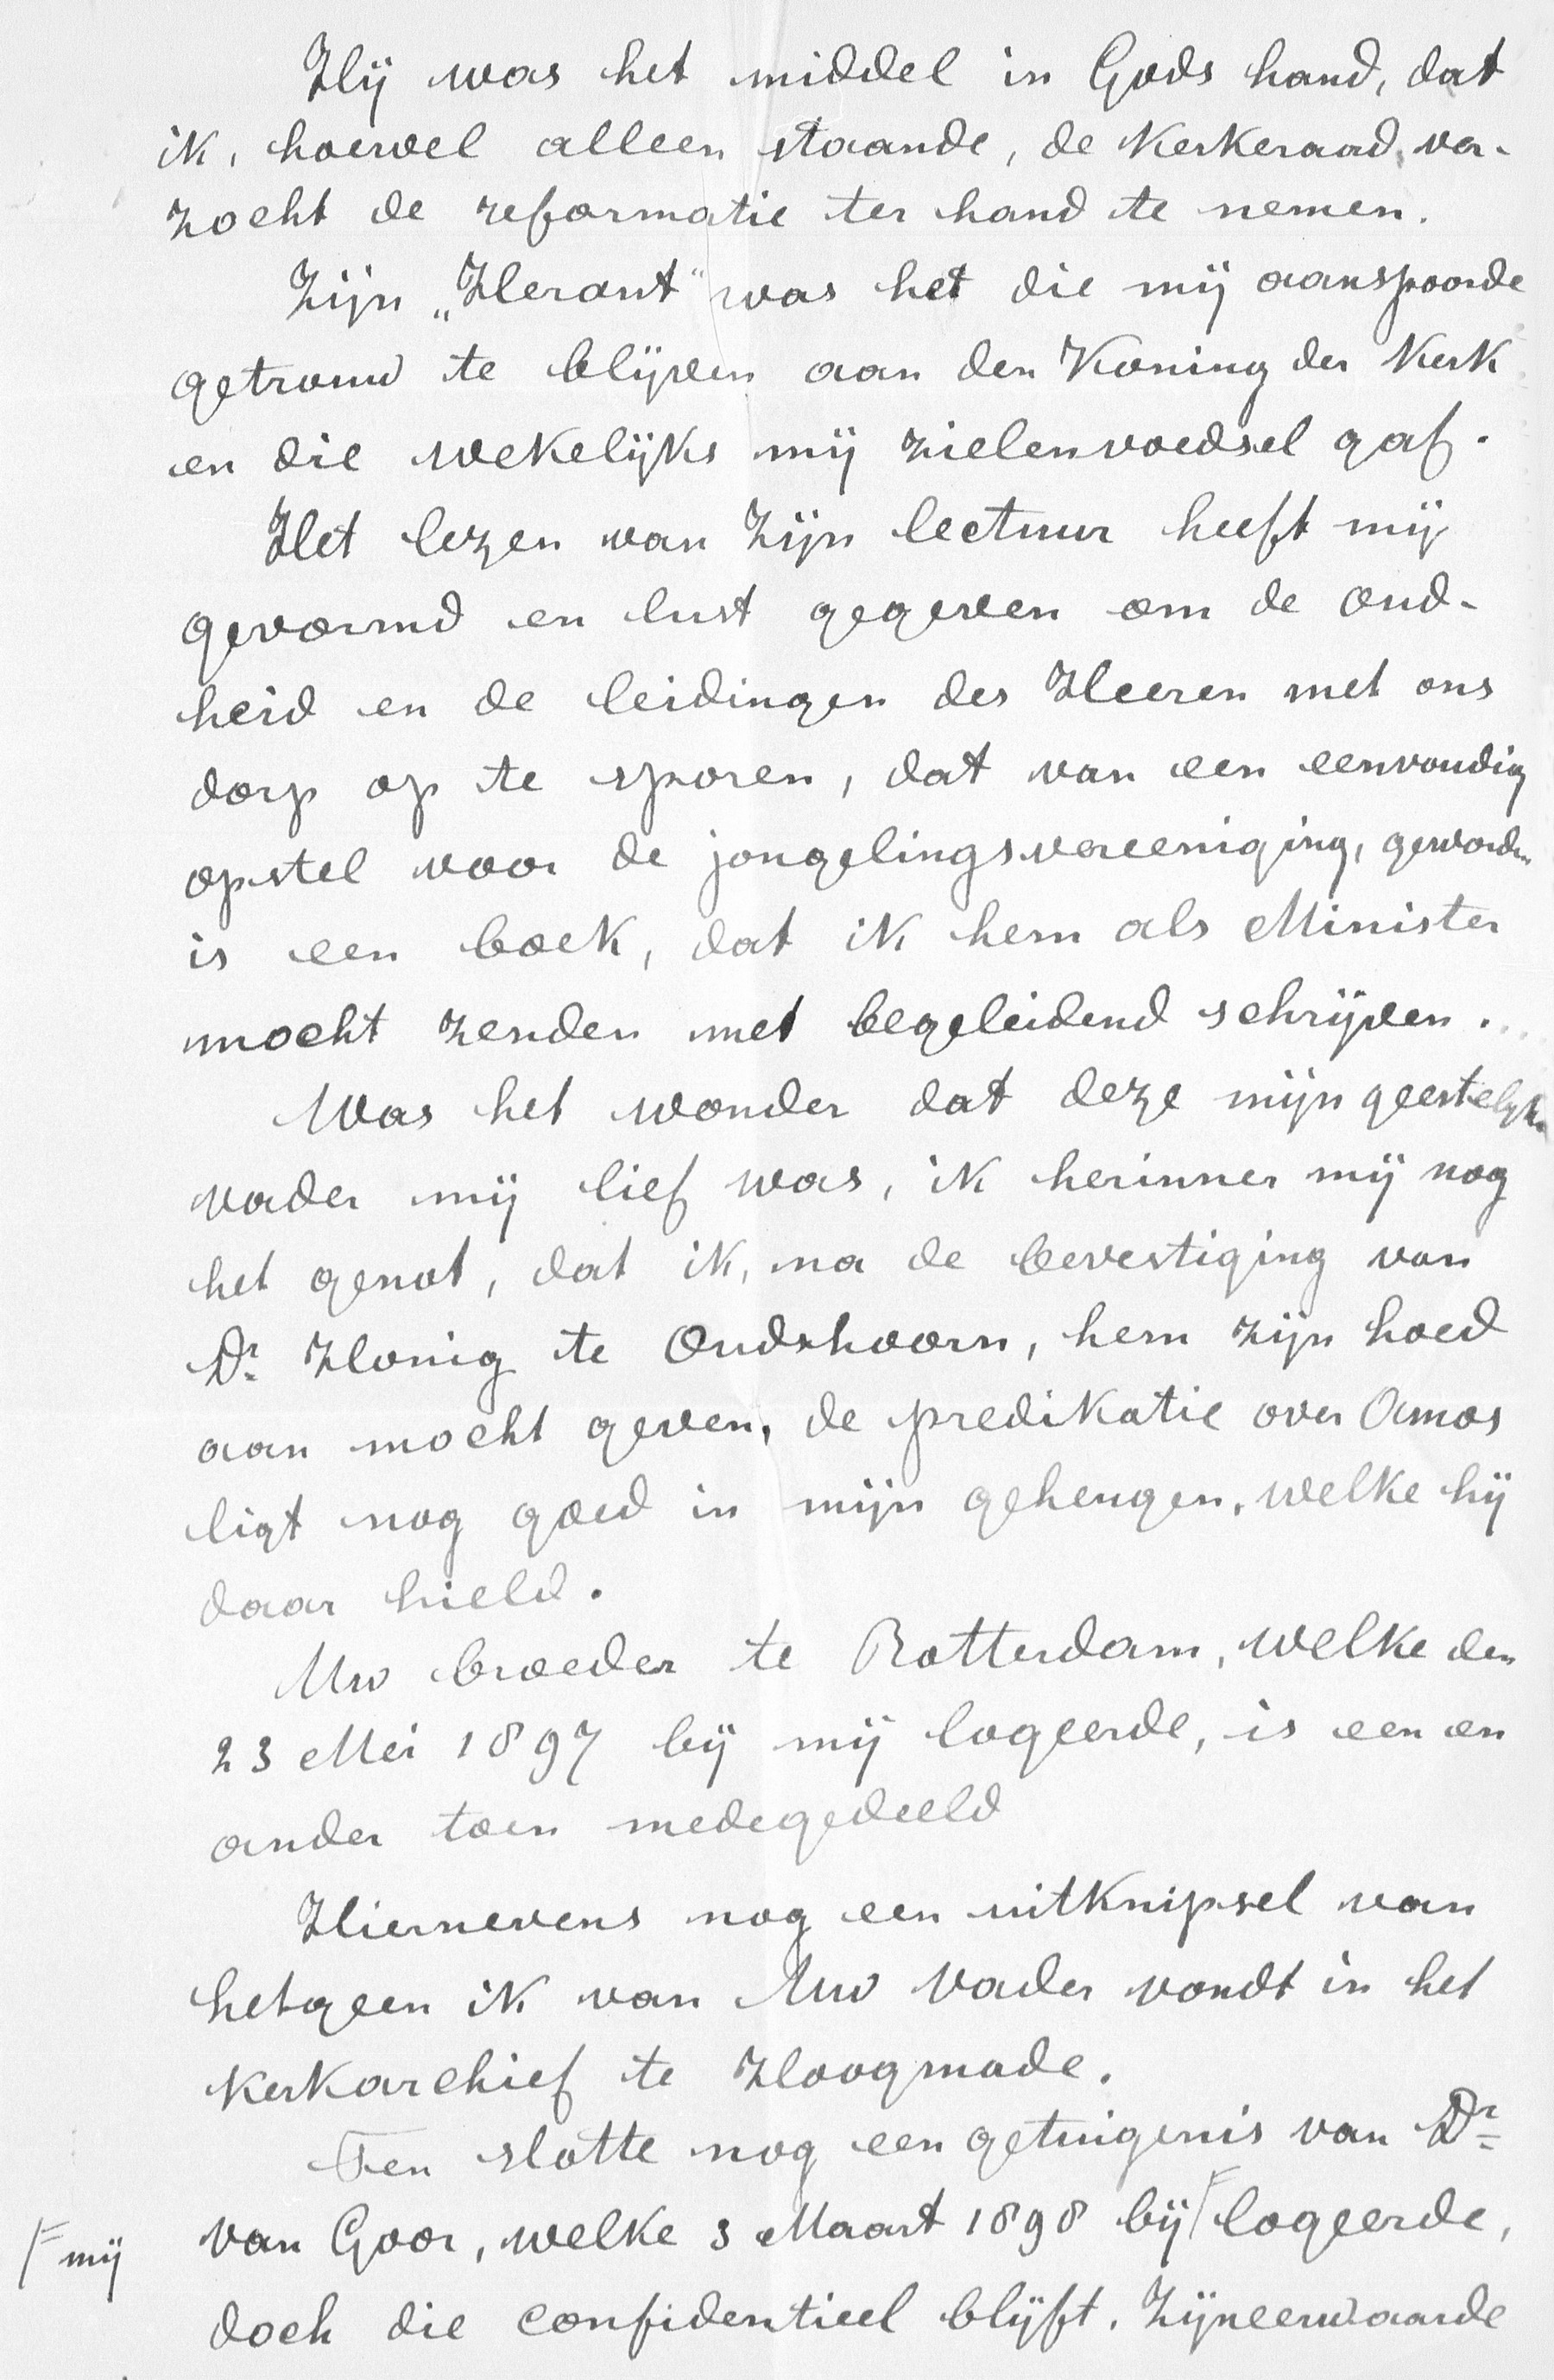 Hij was het middel in Gods hand, dat
ik, hoewel alleen staande, de kerkeraad ver-
zocht de reformatie ter hand te nemen.
Zijn „Heraut" was het die mij aanspoorde
getrouw te blijven aan den Koning der Kerk
en die wekelijks mij zielenvoedsel gaf.
Het lezen van zijn lectuur heeft mij
gevormd en lust gegeven om de oud-
heid en de leidingen des Heeren met ons
dorp op te sporen, dat van een eenvoudig
opstel voor de jongelingsvereeniging, geworden
is een boek, dat ik hem als Minister
mocht zenden met begeleidend schrijven...
Was het wonder dat deze mijn geestelyke
vader mij lief was, ik herinner mij nog
het genot, dat ik, na de bevestiging van
Dr. Honig te Oudshoorn, hem zijn hoed
aan mocht geven, de predikatie over Amos
ligt nog goed in mijn geheugen, welke hij
daar hield.
Uw broeder te Rotterdam, welke den
23 Mei 1897 bij mij logeerde, is een en
ander toen medegedeeld
Hiernevens nog een uitknipsel van
hetgeen ik van Uw Vader vondt in het
kerkarchief te Hoogmade.
Ten slotte nog een getuigenis van Dr.
van Goor, welke 3 Maart 1898 bij ⌈ logeerde,
⌈ mij
doch die confidentieel blijft. Zijneerwaarde